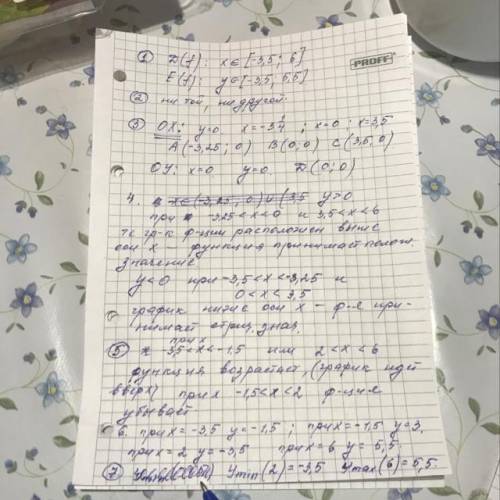 ① D(f): x ∈ [-3,5; 6]
PROFF
E(f): y ∈ [-3,5; 5,5]
② ни той, ни другой.
③ OX: y=0 x=-3 1/4 ; x=0 x=3,5
A(-3,25; 0) B(0; 0) C(3,5; 0)
OY: x=0 y=0 D(0; 0)
4. y>0
при -3,25<x<0 и 3,5<x<6
тк гр-к ф-ции расположен выше
оси x функция принимает полож.
значение
y<0 при -3,5<x<-3,25 и
0<x<3,5
график ниже оси x – ф-я при-
нимает отриц. знач.
⑤ при x -3,5<x<-1,5 или 2<x<6
функция возрастает, (график идёт
вверх) при x -1,5<x<2 ф-ция
убывает
6. при x=-3,5 y=-1,5; при x=-1,5 y=3,
при x=2 y=-3,5 при x=6 y=5,5
⑦ y min (2)=-3,5 y max (6)=5,5.